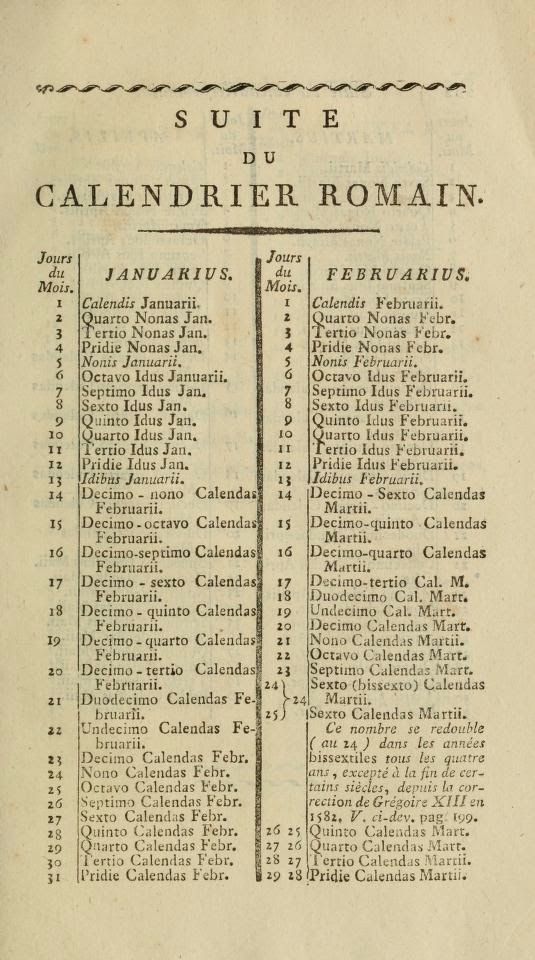 SUITE
DU
CALENDRIER ROMAIN.
Jours
du
Mois.
JANUARIUS.
1 Calendis Januarii.
2 Quarto Nonas Jan.
3 Tertio Nonas Jan.
4 Pridie Nonas Jan.
5 Nonis Januarii.
6 Octavo Idus Januarii.
7 Septimo Idus Jan.
8 Sexto Idus Jan.
9 Quinto Idus Jan.
10 Quarto Idus Jan.
11 Tertio Idus Jan.
12 Pridie Idus Jan.
13 Idibus Januarii.
14 Decimo - nono Calendas
Februarii.
15 Decimo-octavo Calendas
Februarii.
16 Decimo-septimo Calendas
Februarii.
17 Decimo - sexto Calendas
Februarii.
18 Decimo - quinto Calendas
Februarii.
19 Decimo - quarto Calendas
Februarii.
20 Decimo - tertio Calendas
Februarii.
21 Duodecimo Calendas Fe-
bruarii.
22 Undecimo Calendas Fe-
bruarii.
23 Decimo Calendas Febr.
24 Nono Calendas Febr.
25 Octavo Calendas Febr.
26 Septimo Calendas Febr.
27 Sexto Calendas Febr.
28 Quinto Calendas Febr.
29 Quarto Calendas Febr.
30 Tertio Calendas Febr.
31 Pridie Calendas Febr.
Jours
du
Mois.
FEBRUARIUS.
1 Calendis Februarii.
2 Quarto Nonas Febr.
3 Tertio Nonas Febr.
4 Pridie Nonas Febr.
5 Nonis Februarii.
6 Octavo Idus Februarii.
7 Septimo Idus Februarii.
8 Sexto Idus Februarii.
9 Quinto Idus Februarii.
10 Quarto Idus Februarii.
11 Tertio Idus Februarii.
12 Pridie Idus Februarii.
13 Idibus Februarii.
14 Decimo - Sexto Calendas
Martii.
15 Decimo-quinto Calendas
Martii.
16 Decimo-quarto Calendas
Martii.
17 Decimo-tertio Cal. M.
18 Duodecimo Cal. Mart.
19 Undecimo Cal. Mart.
20 Decimo Calendas Mart.
21 Nono Calendas Martii.
22 Octavo Calendas Mart.
23 Septimo Calendas Mart.
24 Sexto (bissexto) Calendas
24 Martii.
25 Sexto Calendas Martii.
Ce nombre se redouble
( au 24 ) dans les années
bissextiles tous les quatre
ans, excepté à la fin de cer-
tains siècles, depuis la cor-
rection de Grégoire XIII en
1582, V. ci-dev. pag. 199.
26 25 Quinto Calendas Mart.
27 26 Quarto Calendas Mart.
28 27 Tertio Calendas Mart.
29 28 Pridie Calendas Martii.